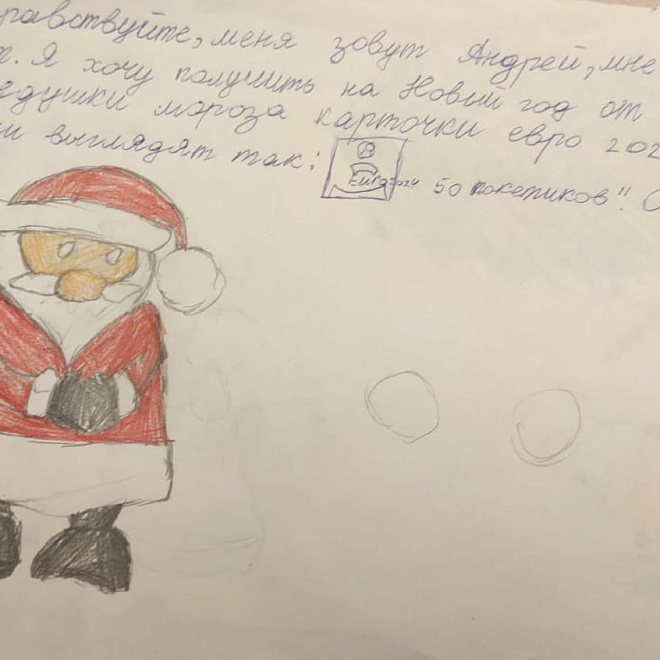 равствуйте, меня зовут Андрей, мне
т. Я хочу получить на Новый год от
едушки мороза карточки евро 202
и выглядят так: Euro2024 50 покетиков"! О